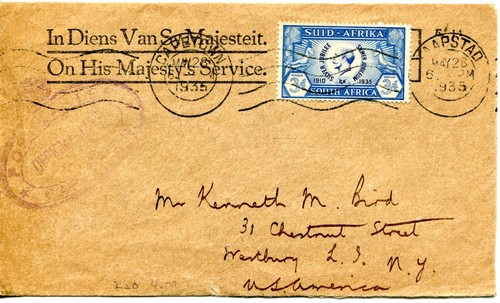 In Diens Van Sy Majesteit.
On His Majesty's Service.
CAPETOWN
MY 28
1935
SUID-AFRIKA
SILWER JUBILEUM
SILVER JUBILEE
1910 1935
3d 3d
SOUTH AFRICA
KAAPSTAD
MY 28
6 PM
1935
Mr Kenneth M. Bird
31 Chestnut Street
Westbury L. I. N.Y.
U.S. America
250 4.00